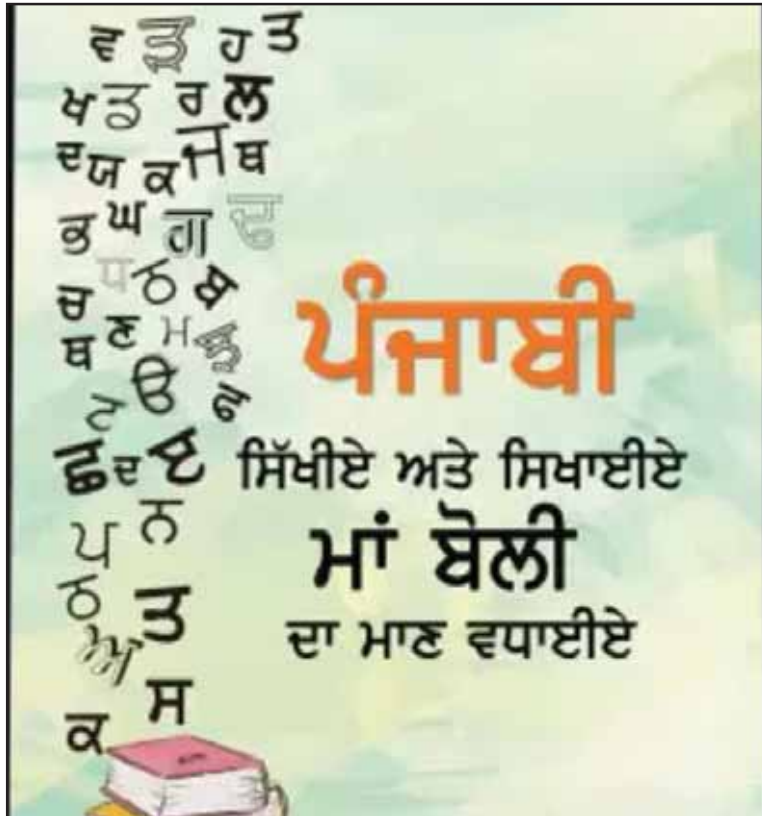 ਵ ੜ ਹ ਤ
ਖ ਰ ਲ
ਦ ਯ ਕ ਜ ਥ
ਭ ਘ ਗ ਢ
ਧ ਠ ਬ
ਚ
ਥ ਣ ਮ
ੳ
ਛ ਦ ੲ
ਪ ਨ
ਠ ਤ
ਅ
ਕ ਸ
ਪੰਜਾਬੀ
ਸਿੱਖੀਏ ਅਤੇ ਸਿਖਾਈਏ
ਮਾਂ ਬੋਲੀ
ਦਾ ਮਾਣ ਵਧਾਈਏ